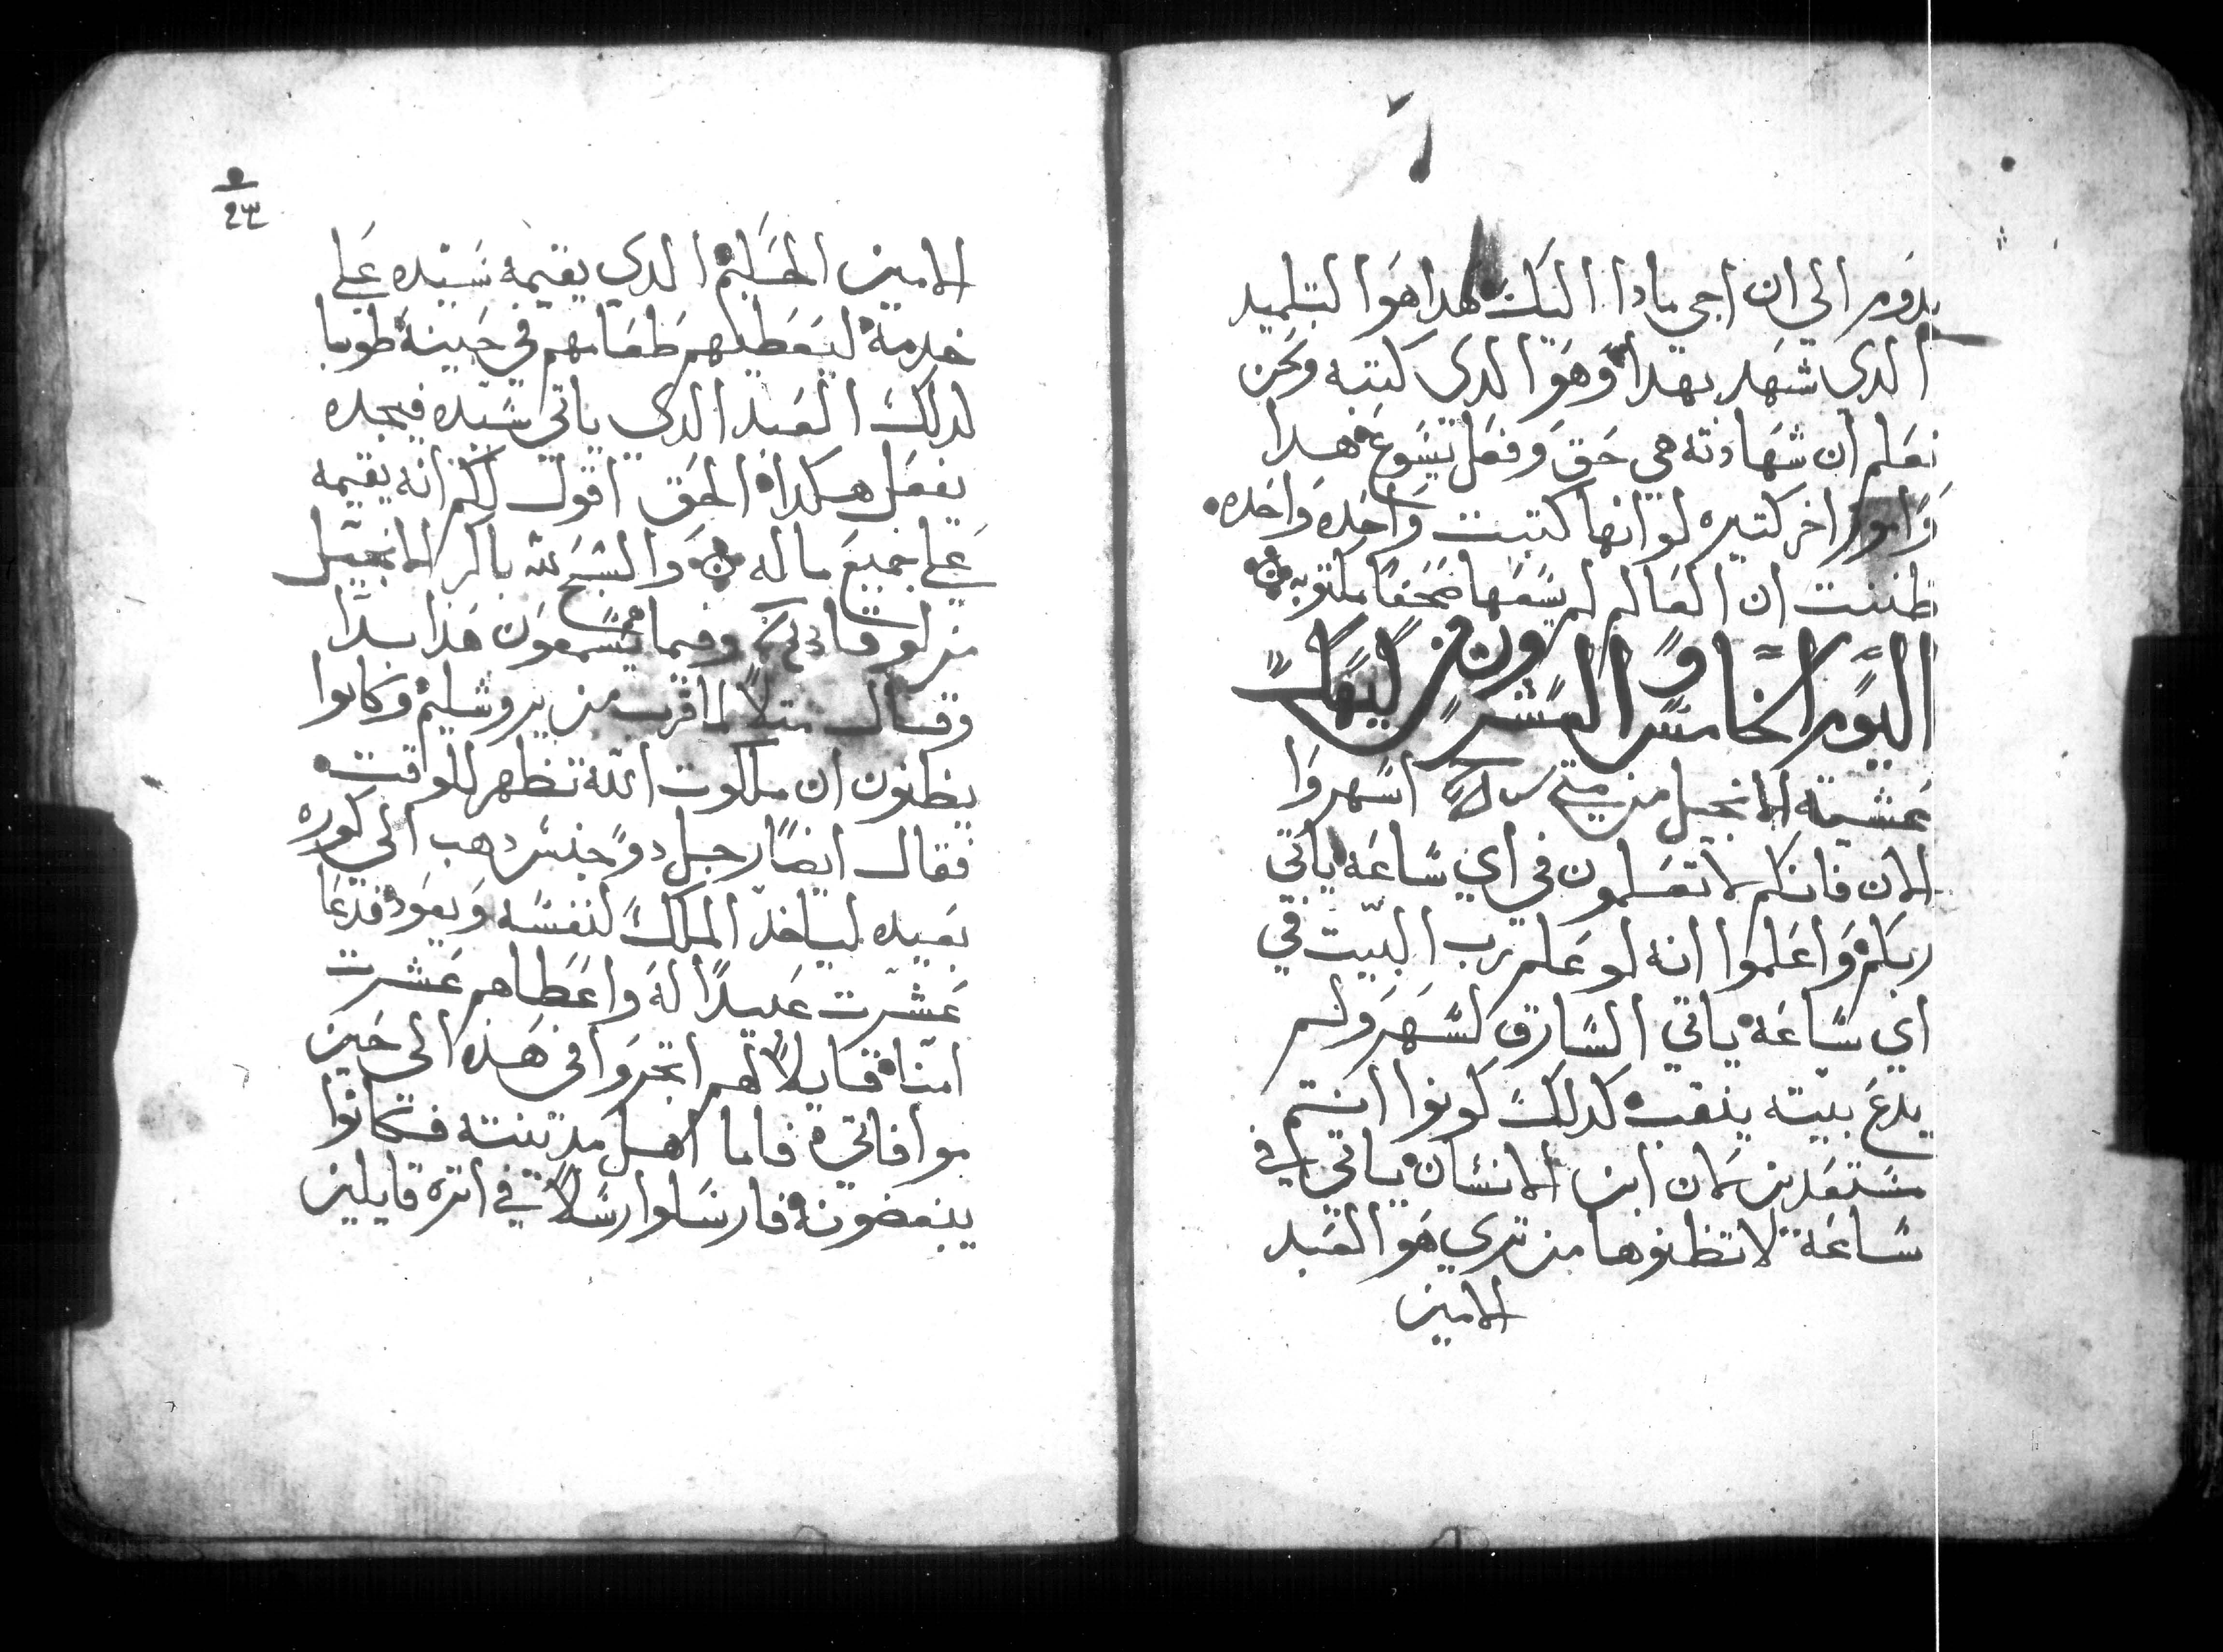 يدوم الي ان اجي مادا اليك هدا هو التلميد
الدي شهد بهدا وهو الدي كتبه ونحن
نعلم ان شهادته هي حق وفعل يسوع هدا
وامور اخر كتيره لو انها كتبت واحده واحده
ظننت ان العالم لم يسعها صحفا مكتوبه
اليوم الخامس والعشرون من كيهك
عشية الانجيل من متي اسهروا
الان فانكم لا تعلمون في اي ساعه ياتي
ربكم واعلموا انه لو علم رب البيت في
اي ساعه ياتي السارق لسهر ولم
يدع بيته ينقب كدلك كونوا انتم
مستعدين لان ابن الانسان ياتي في
ساعة لا تظنوها من تري هو العبد
الامين
الامين الحكيم الدي يقيمه سيده علي
خدمة ليعطيهم طعامهم في حينه طوبا
لدلك العبد الدي ياتي سيده فيجده
يفعل هكدا الحق اقول لكم انه يقيمه
علي جميع ماله والشبح لله باكر الانجيل
من لوقا وفيما يسمعون هذا بدا
وقال متلا لما قرب من يروشليم وكانوا
يظنون ان ملكوت الله تظهر للوقت
فقال ايضا رجل دو جنس دهب الي كوره
بعيده لياخد الملك لنفسه ويعود فدعا
عشرت عبيدا له واعطاهم عشرت
امنا قايلا لهم اتجروا في هذه الي حين
موافاتي فاما اهل مدينته فكانوا
يبغضونه فارسلوا رسلا في اتره قايلين